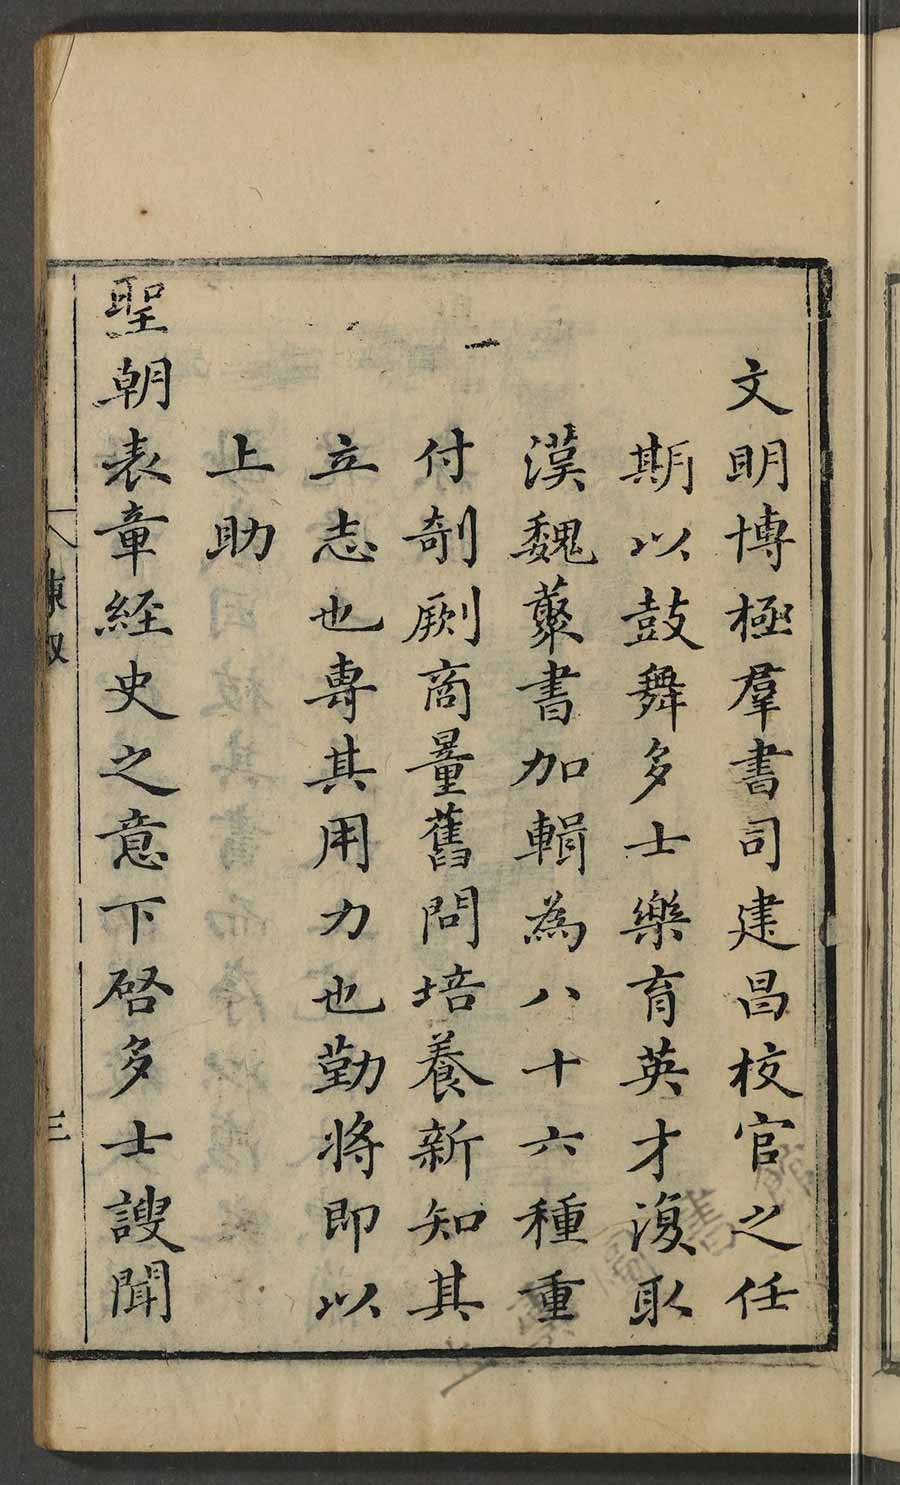 文明博極羣書司建昌校官之任
期以鼓舞多士樂育英才復取
漢魏叢書加輯為八十六種重
付剞劂商量舊問培養新知其
立志也專其用力也勤將即以
上助
聖朝表章經史之意下啓多士謏聞
陳叙
三